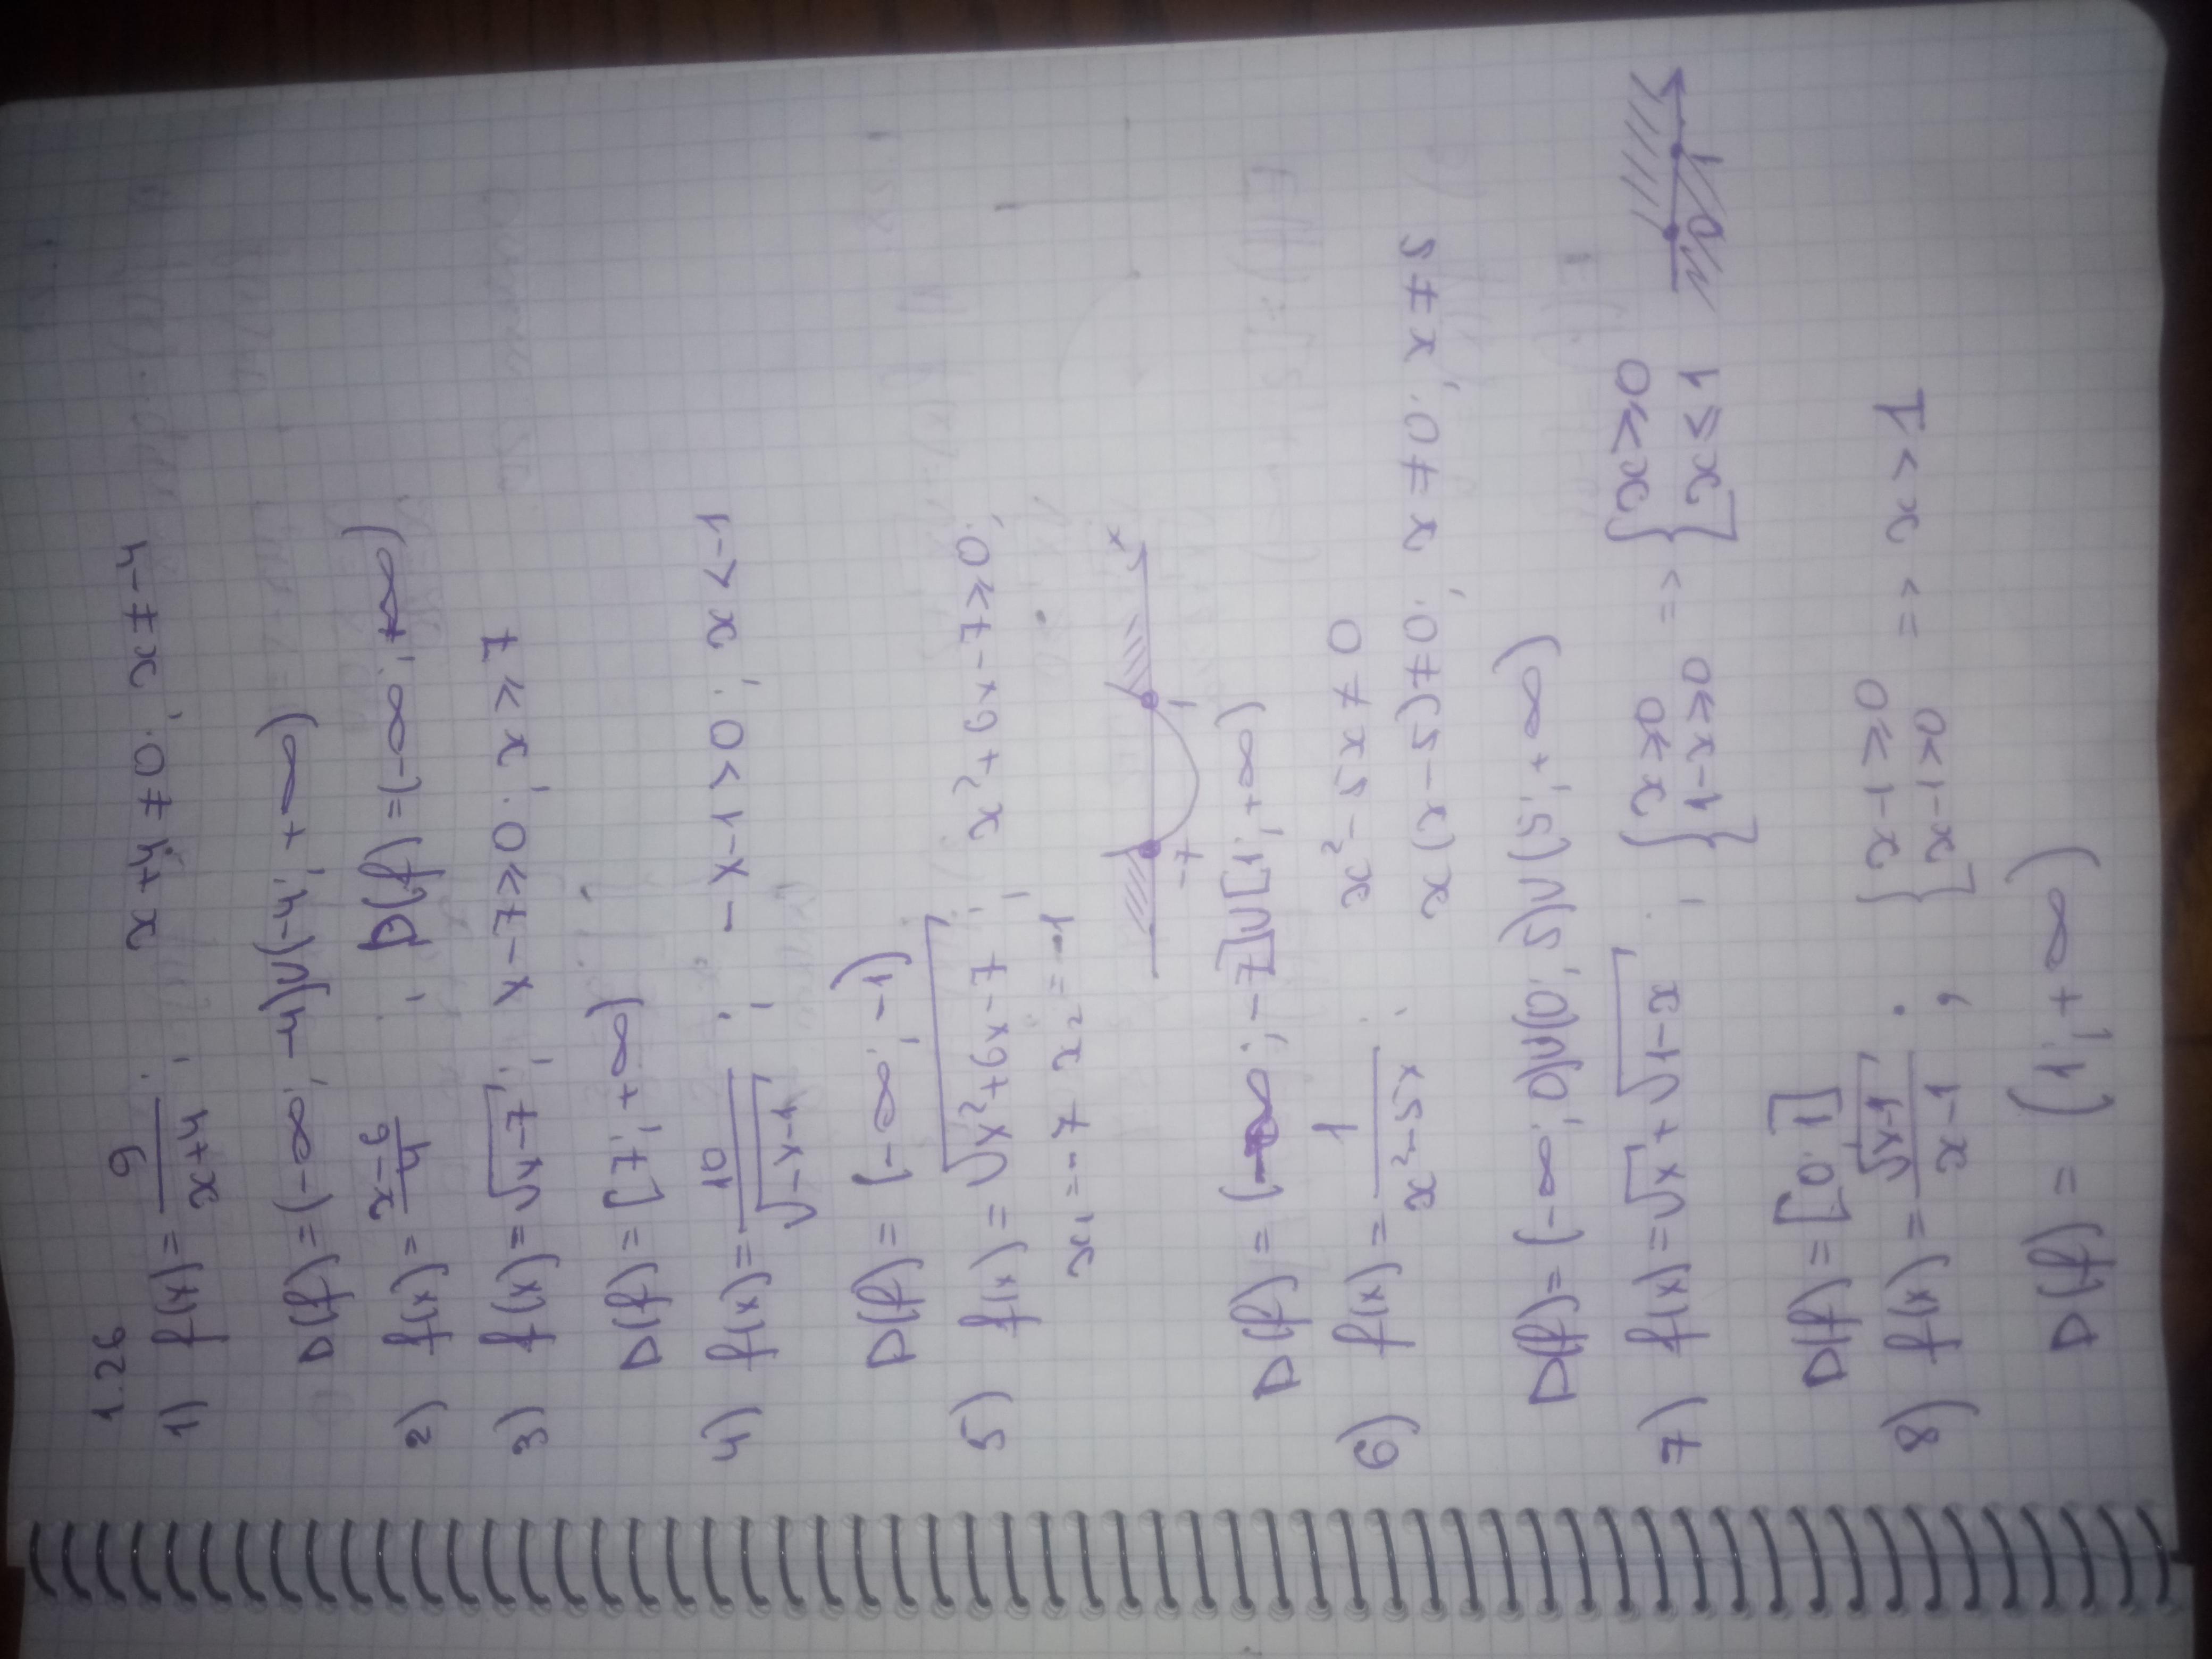 1.26
1) f(x) = 9/(x+4) ; x+4 ≠ 0; x ≠ -4
D(f) = (-∞; -4)∪(-4; +∞)
2) f(x) = (x-6)/4 ; D(f) = (-∞; +∞)
3) f(x) = √(x-7) ; x-7 ≥ 0; x ≥ 7
D(f) = [7; +∞)
4) f(x) = 10/√(-x-1) ; -x-1 > 0; x < -1
D(f) = (-∞; -1)
5) f(x) = √(x²+6x-7) ; x²+6x-7 ≥ 0;
x₁ = -7 x₂ = -1
-7 1 x
D(f) = (-∞; -7]∪[1; +∞)
6) f(x) = 1/(x²-5x) ; x²-5x ≠ 0
x(x-5) ≠ 0; x ≠ 0; x ≠ 5
D(f) = (-∞; 0)∪(0; 5)∪(5; +∞)
7) f(x) = √x + √(1-x) ; { x ≥ 0 1-x ≥ 0 => { x ≥ 0 x ≤ 1 0 1
D(f) = [0; 1]
8) f(x) = √(x-1)/(x-1) ; { x-1 ≥ 0 x-1 ≠ 0 => x > 1
D(f) = (1; +∞)